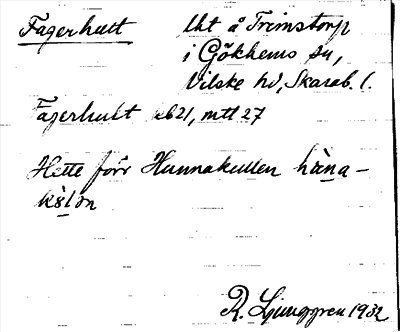 Fagerhult lht å Trimstorp
i Gökhems sn,
Vilske hd, Skarab. l.
Fagerhult eb21, mtl 27
Hette förr Hunnakullen hàna-
kʹslɔn
R. Ljunggren 1932